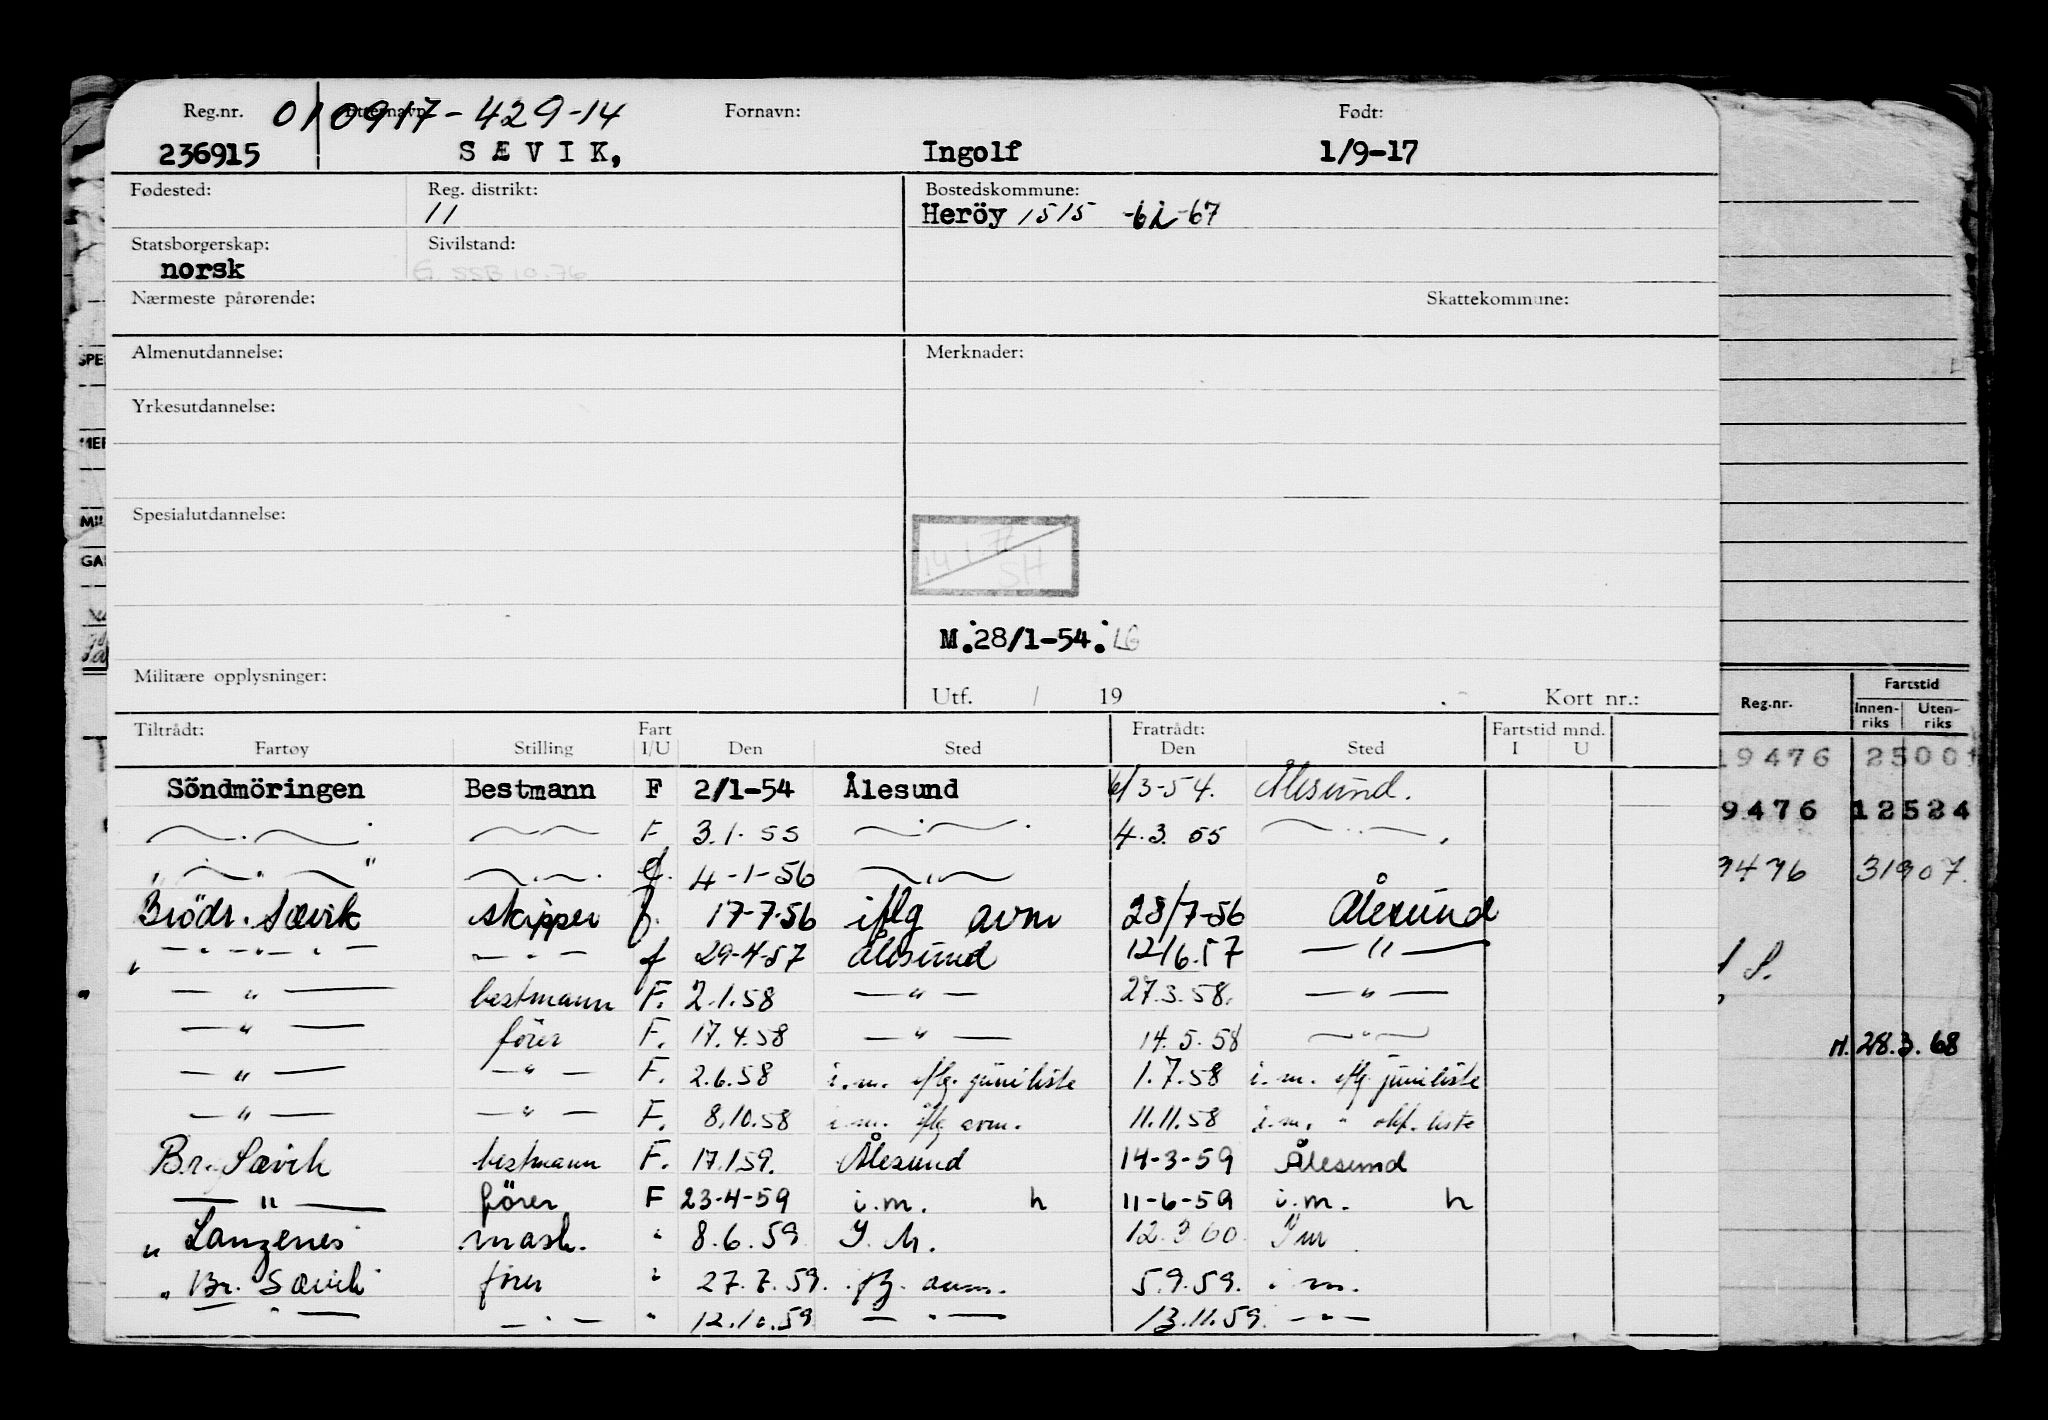 Reg.nr. 010917-429-14 Etternavn: Fornavn: Født:
236915 SÆVIK, Ingolf 1/9-17
Fødested: Reg. distrikt: Bostedskommune:
11 Heröy 1515 -67
Statsborgerskap: Sivilstand:
norsk G. SSB 10.76
Nærmeste pårørende: Skattekommune:
Almenutdannelse: Merknader:
Yrkesutdannelse:
Spesialutdannelse:
SH
M.28/1-54. LG
Militære opplysninger:
Utf. / 19 Kort nr.:
Tiltrådt: Fart Fratrådt: Fartstid mnd.
Fartøy Stilling I/U Den Sted Den Sted I U
Söndmöringen Bestmann F 2/1-54 Ålesund 6/3-54. Ålesund.
F 3.1.55 4.3.55
4-1-56
Brödr. Sævik skipper f. 17-7-56 iflg avm 28/7-56 Ålesund
— " — — " — f 29-4-57 Ålesund 12/6.57 — " —
— " — bestmann F. 2.1.58 — " — 27.3.58. — " —
— " — förer F. 17.4.58 — " — 14.5.58 — " —
— " — — " — F. 2.6.58 i.m. iflg. juniliste 1.7.58 i.m. iflg. juniliste
— " — — " — F. 8.10.58 i.m. iflg avm. 11.11.58 i.m. " okt. liste
Br. Sævik bestmann F. 17.1.59. Ålesund 14-3-59 Ålesund
— " — förer F 23-4-59 i.m. h 11-6-59 i.m. h
" mask. " 8.6.59 I.M. 12.3.60.
" Br. Sævik förer " 27.7.59. iflg. avm. 5.9.59. i m.
— " — — " — " 12.10.59 — " — 13.11.59. — " —
SPE
MER
MIL
GA
Reg.nr. Fartstid
Innen-riks Uten-riks
19476 25001
9476 12524
9476 31907.
28.3.68